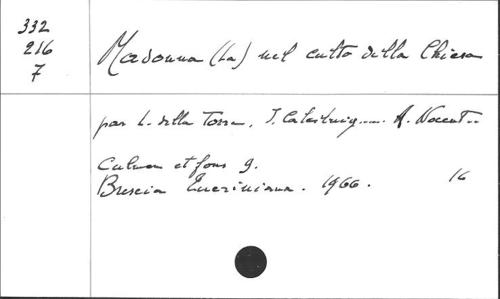 332
216
7
Madonna (La) nel culto della Chiesa
par L. della Torre, J. Castellvig..... A. Nocent..
Culmen et fons 9.
Brescia Queriniana. 1966. 16